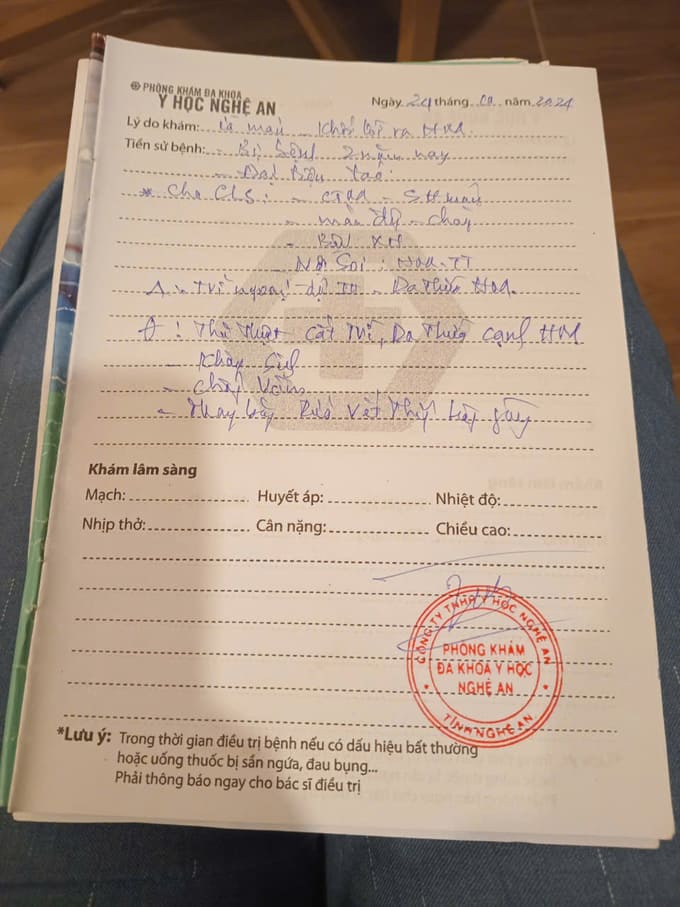 PHÒNG KHÁM ĐA KHOA
Y HỌC NGHỆ AN
Ngày 24 tháng năm 2024
Lý do khám: ỉa máu - khối lồi ra HM.
Tiền sử bệnh: - Bị bệnh 2 năm nay
* Cho CLS: - - SH máu
- máu - chảy
- Nội Soi: HM-TT
- Trĩ ngoại - Da thừa HM.
! Thủ thuật cắt trĩ, Da thừa cạnh HM
- Kháng Sinh
- Chống Viêm
- Thay băng Rửa vết hàng ngày
Khám lâm sàng
Mạch: Huyết áp: Nhiệt độ:
Nhịp thở: Cân nặng: Chiều cao:
CÔNG TY TNHH Y HỌC NGHỆ AN
PHÒNG KHÁM
ĐA KHOA Y HỌC
NGHỆ AN
TỈNH NGHỆ AN
*Lưu ý: Trong thời gian điều trị bệnh nếu có dấu hiệu bất thường
hoặc uống thuốc bị sẩn ngứa, đau bụng...
Phải thông báo ngay cho bác sĩ điều trị